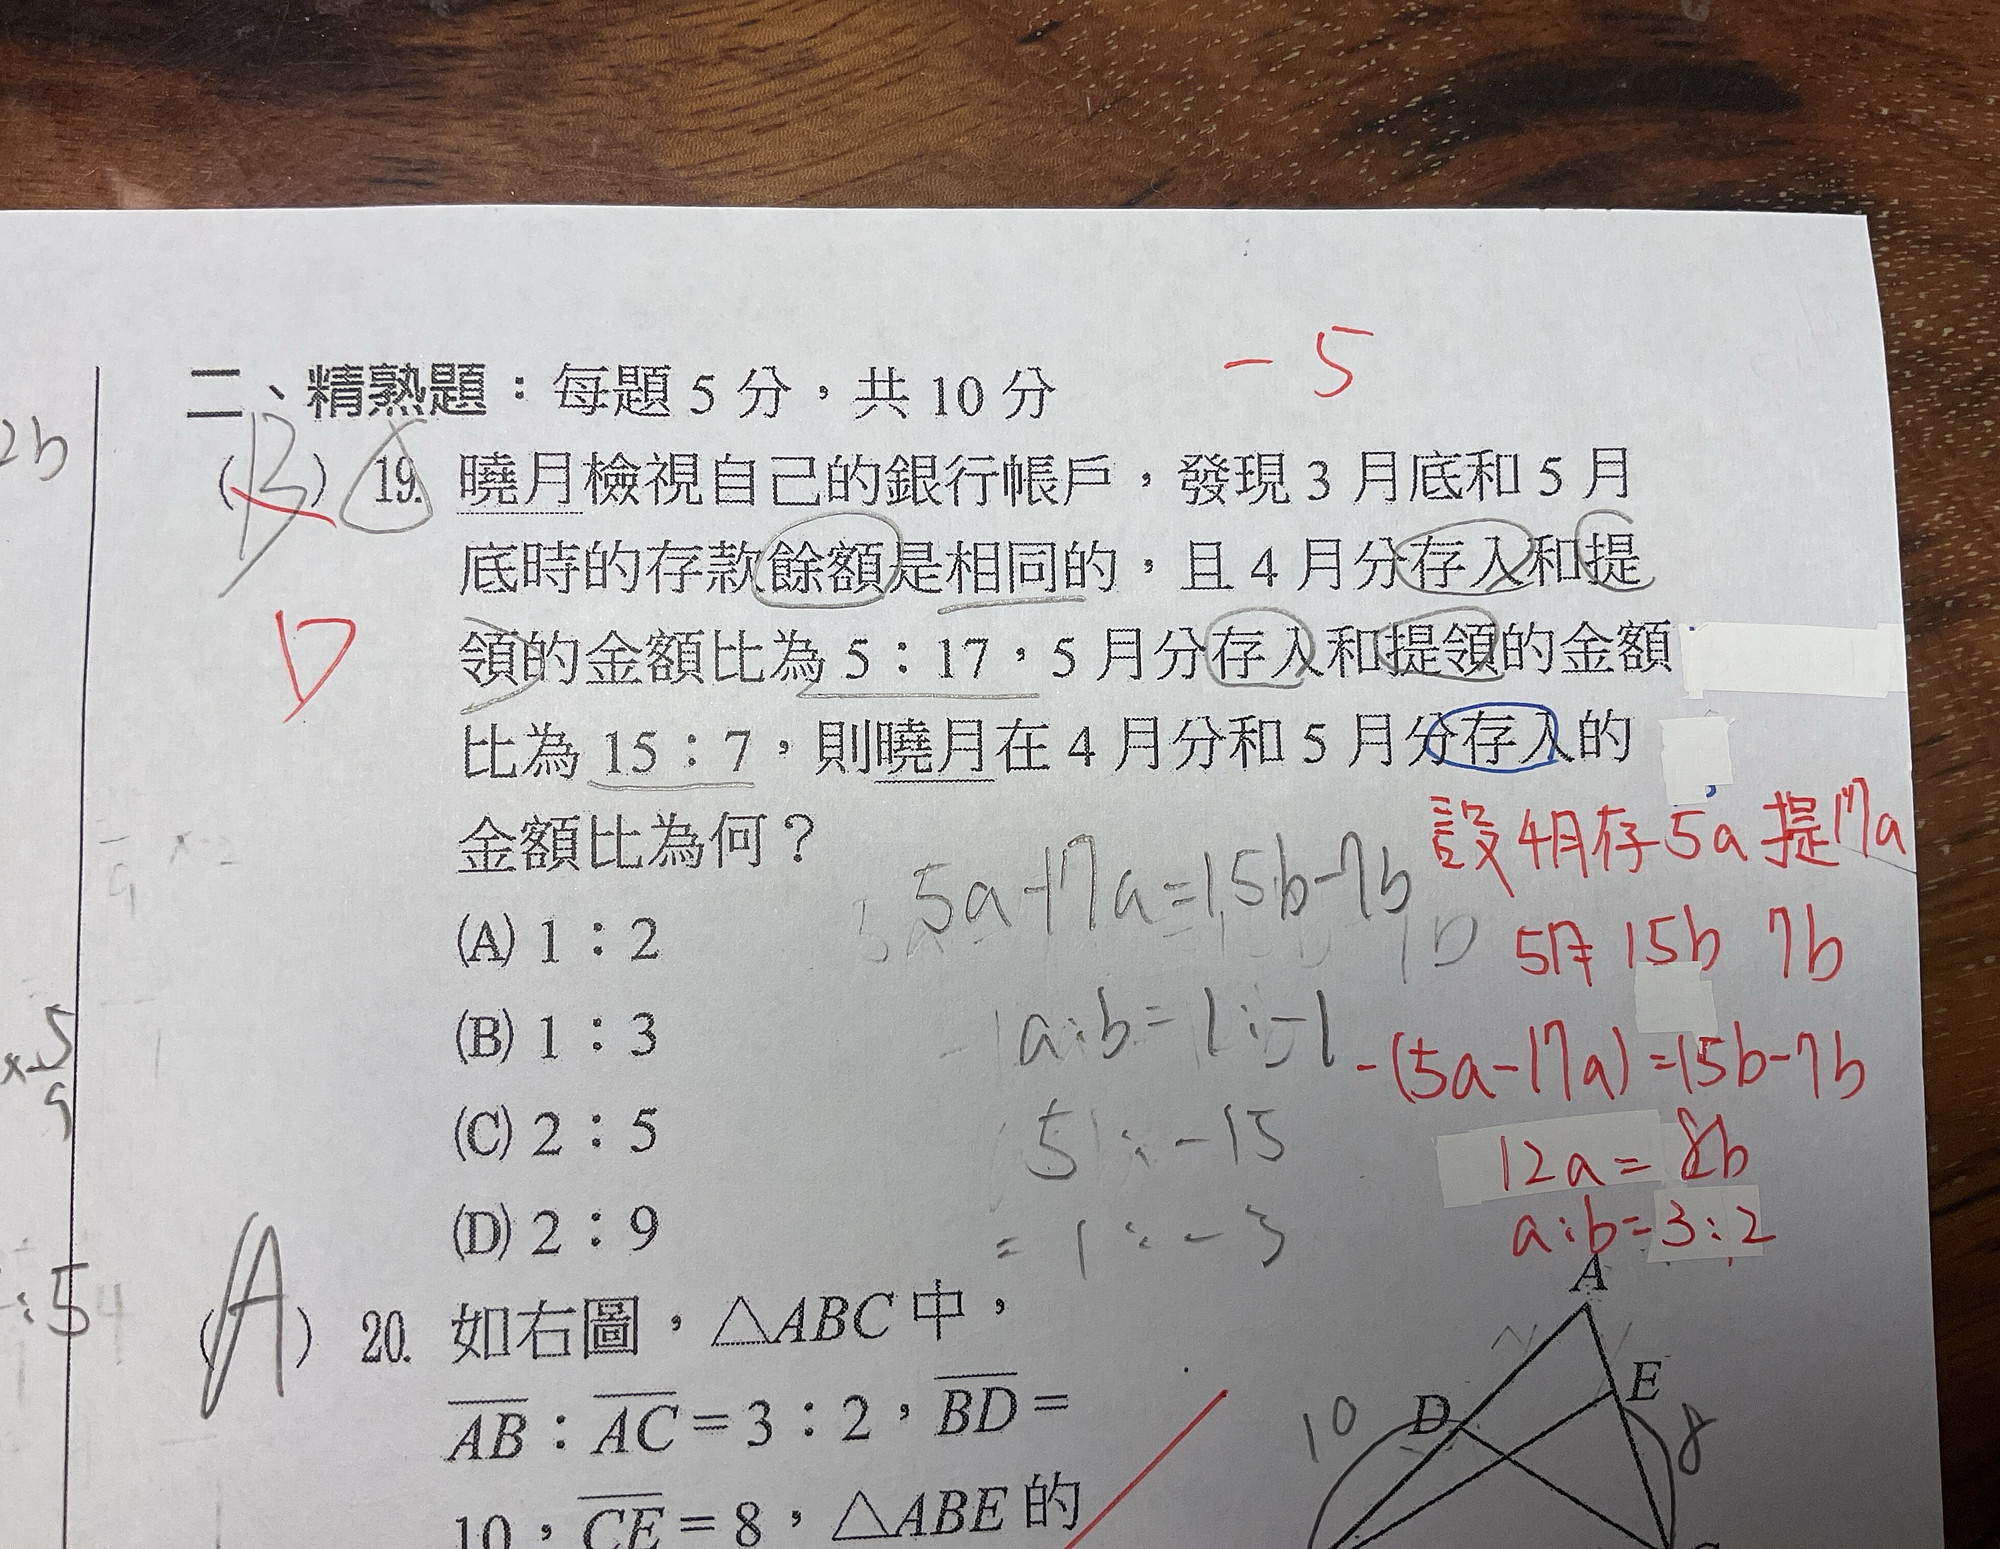 -5
二、精熟題：每題 5 分，共 10 分
2b
(B) 19. 曉月檢視自己的銀行帳戶，發現 3 月底和 5 月
底時的存款餘額是相同的，且 4 月分存入和提
D
領的金額比為 5：17，5 月分存入和提領的金額
比為 15：7，則曉月在 4 月分和 5 月分存入的
金額比為何？
設4月存5a 提17a
5a-17a=15b-7b
(A) 1：2
5月 15b 7b
(B) 1：3
a:b=1:-1
-(5a-17a)=15b-7b
(C) 2：5
5:-15
12a=8b
(D) 2：9
=1:-3
a:b=3:2
:5
(A) 20. 如右圖，△ABC 中，
AB：AC＝3：2，BD＝
10，CE＝8，△ABE 的
A
E
D
10
8